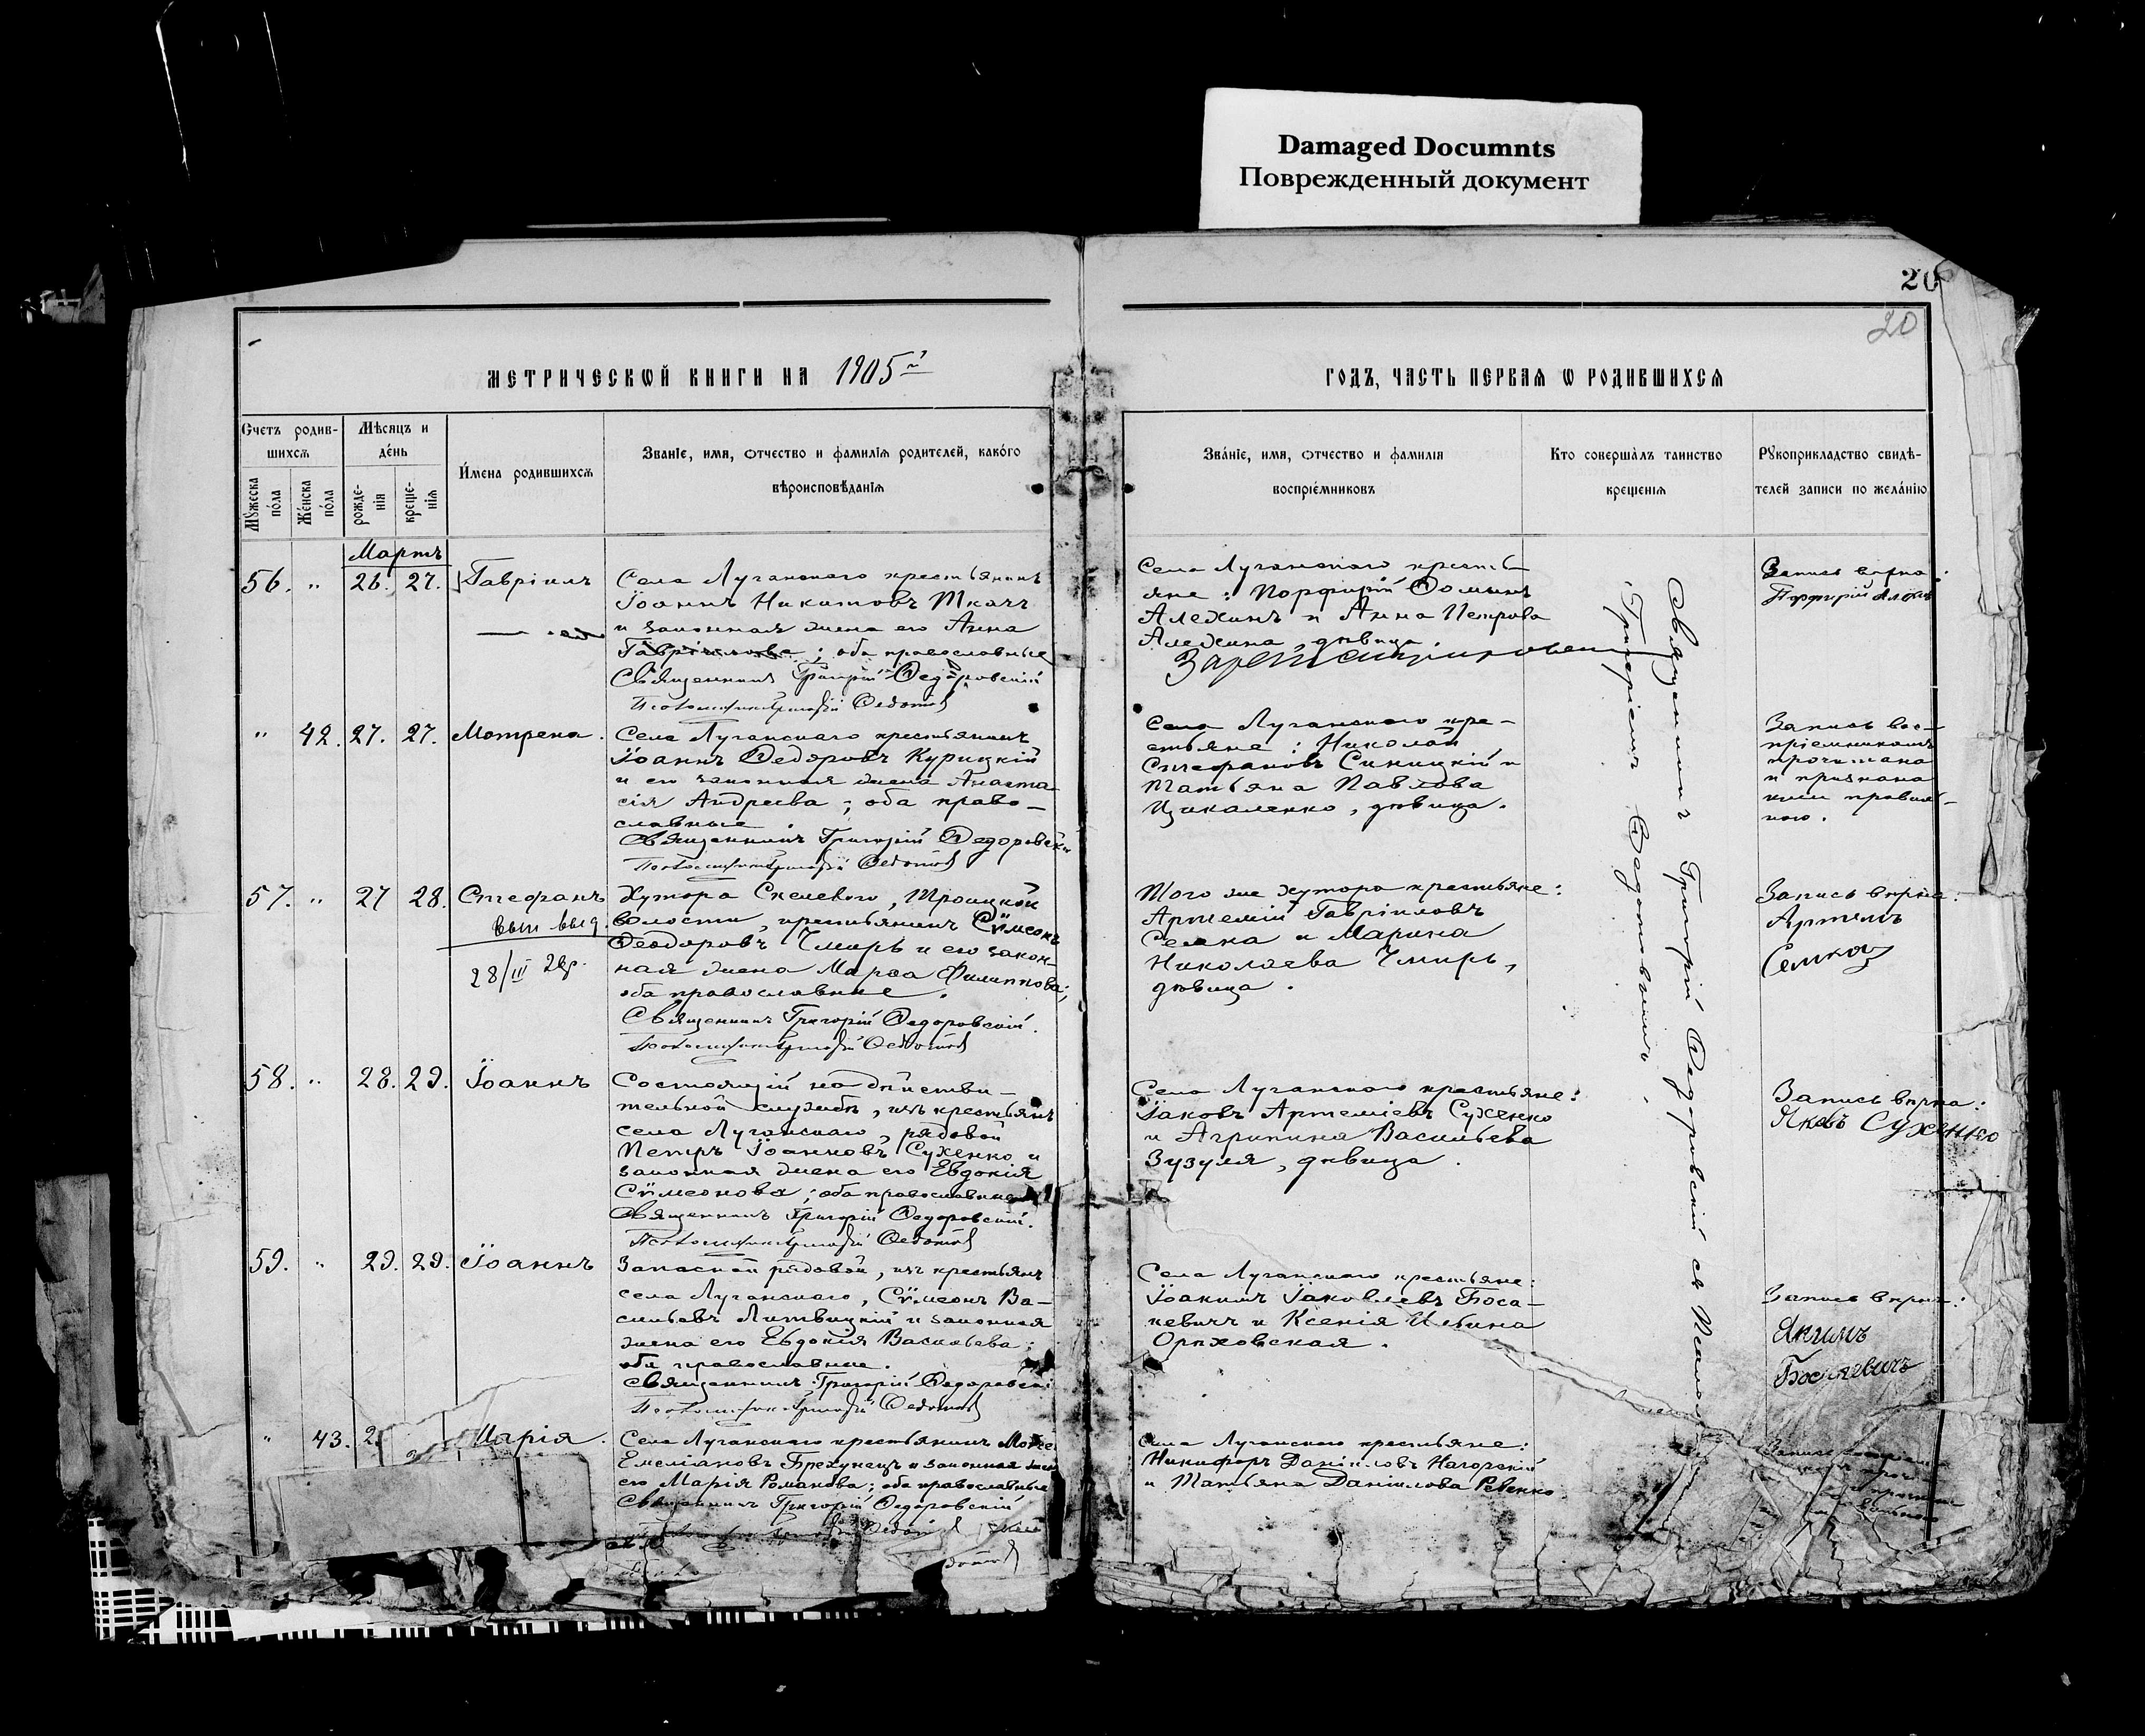 Damaged Documnts
Поврежденный документ
20
20
МЕТРИЧЕСКОЙ КНИГИ НА 1905й
ГОДЪ, ЧАСТЬ ПЕРВАЯ Ѡ РОДИВШИХСЯ
Счетъ родив-
шихся
Мужеска пола
Женска пола
Мѣсяцъ и
день
рожде-
нія
креще-
нія
Имена родившихся
Званіе, имя, отчество и фамилія родителей, какого
вѣроисповѣданія
Званіе, имя, отчество и фамилія
воспріемниковъ
Кто совершалъ таинство
крещенія
Рукоприкладство свидѣ-
телей записи по желанію
Мартъ
56. " 26. 27. Гавріилъ
Села Луганскаго крестьянинъ
Іоаннъ Никитовъ Ткачъ
и законная жена его Анна
Гавріилова; оба православные
Священникъ Григорій Ѳедоровскій
Псаломщикъ Григорій Ѳедотовъ
Села Луганскаго кресть
яне: Порфирій Ѳоминъ
Алехинъ и Анна Петрова
Алехина, дѣвица.
Запись вѣрна:
Порфирій Алехинъ
" 42. 27. 27. Матрена.
Села Луганскаго крестьянинъ
Іоаннъ Ѳедоровъ Курицкій
и его законная жена Анаста-
сія Андреева; оба право-
славные.
Священникъ Григорій Ѳедоровскій
Псаломщикъ Григорій Ѳедотовъ
Села Луганскаго кре-
стьяне: Николай
Стефановъ Синицкій и
Татьяна Павлова
Цикаленко, дѣвица.
Запись вос-
пріемникамъ
прочитана
и признана
ими правиль-
ною.
57. " 27 28. Стефанъ
вып выд.
28/III 28г.
Хутора Скелеваго, Троицкой
волости, крестьянинъ Сѵмеонъ
Ѳеодоровъ Чмирь и его закон-
ная жена Марѳа Филиппова;
оба православные.
Священникъ Григорій Ѳедоровскій.
Псаломщикъ Григорій Ѳедотовъ
Того же хутора крестьяне:
Артемій Гавріиловъ
Семка и Марина
Николаева Чмирь,
дѣвица.
Запись вѣрна:
Артемъ
58. " 28. 29. Іоаннъ
Состоящій на дѣйстви-
тельной службѣ, изъ крестьянъ
села Луганскаго, рядовой
Петръ Іоанновъ Сухенко и
законная жена его Евдокія
Сѵмеонова; оба православные
Священникъ Григорій Ѳедоровскій.
Псаломщикъ Григорій Ѳедотовъ
Села Луганскаго крестьяне:
Іаковъ Артеміевъ Сухенко
и Агрипина Васильева
Зузуля, дѣвица.
Запись вѣрна:
Яковъ Сухенко
59. " 29. 29. Іоаннъ
Запасной рядовой, изъ крестьянъ
села Луганскаго, Сѵмеонъ Ва-
сильевъ Литвицкій и законная
жена его Евдокія Васильева;
оба православные.
Священникъ Григорій Ѳедоровскій
Псаломщикъ Григорій Ѳедотовъ
Села Луганскаго крестьяне:
Іоакимъ Іаковлевъ Боса-
кевичъ и Ксенія Ильина
Орѣховская.
Запись вѣрна:
Якимъ
" 43. Марія.
Села Луганскаго крестьянинъ
Емеліановъ Брехунецъ и законная жена
его Марія Романова; оба православные
Священникъ Григорій Ѳедоровскій
Села Луганскаго крестьяне:
Никифоръ Даніиловъ Нагорскій
и Татьяна Даніилова Ревенко.
Священникъ Григорій Ѳедоровскій съ
Григоріемъ Ѳедотовымъ.